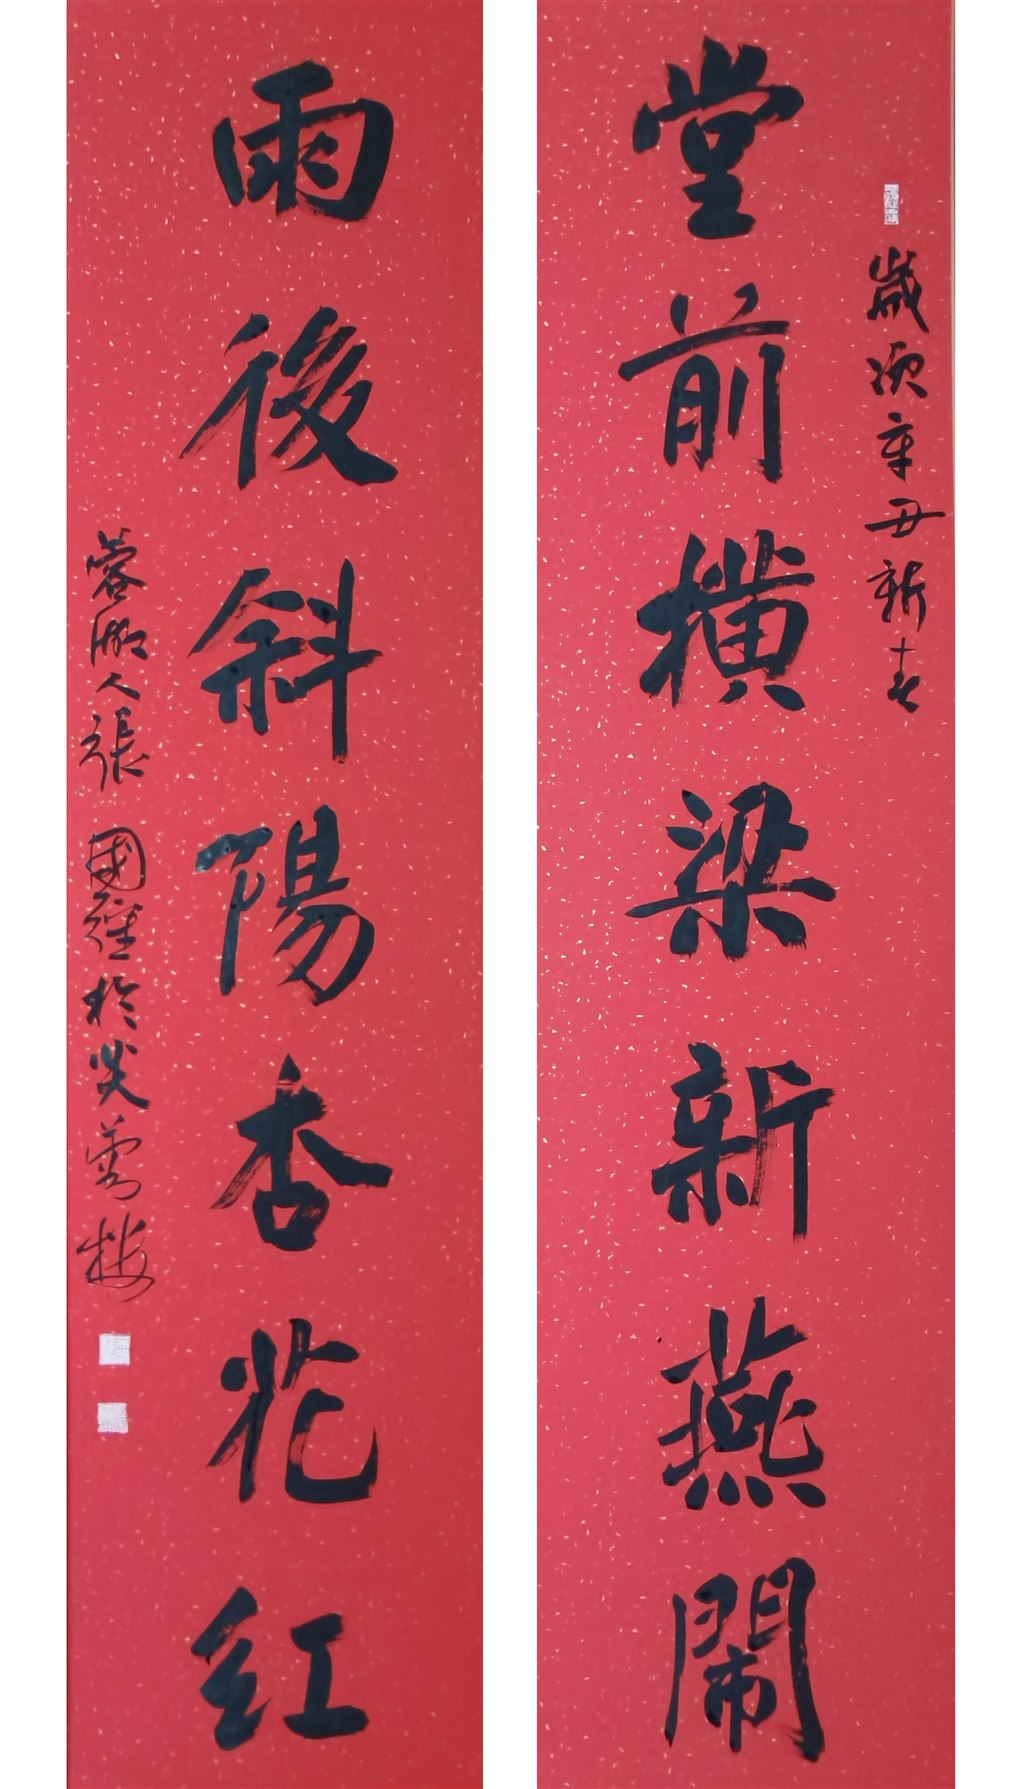 歲次辛丑新春
堂前横梁新燕鬧
雨後斜陽杏花紅
蓉湖人張國權於炎萼樓